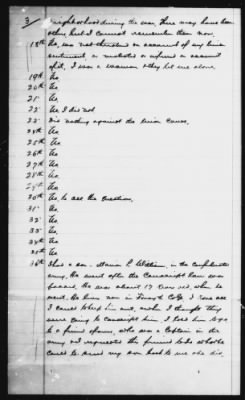 3
neighborhood during the war, there may have been
other but I cannot remember them now.
18th No, was not threatened on account of my Union
sentiment, or molested or injured on account
of it, I was a woman & they let me alone
19th No.
20th No.
21st No.
22 No I did not
23 Did nothing against the Union Cause.
24th No.
25th No
26th No.
27th No.
28th No.
29th No.
30th No, to all the Question.
31st No.
32 No.
33 No.
34th No
35th No
36th I had a son - in the Confederate
army. He went after the Conscript law was
passed, He was about 17 years old, when he
went. He lives now in Co. Ga. I done all
I could to keep him out, & when I thought they
were going to Conscript him I told him to go
to a friend of ours, who was a Captain in the
army and requested this friend to do what he
could to send my son back to me